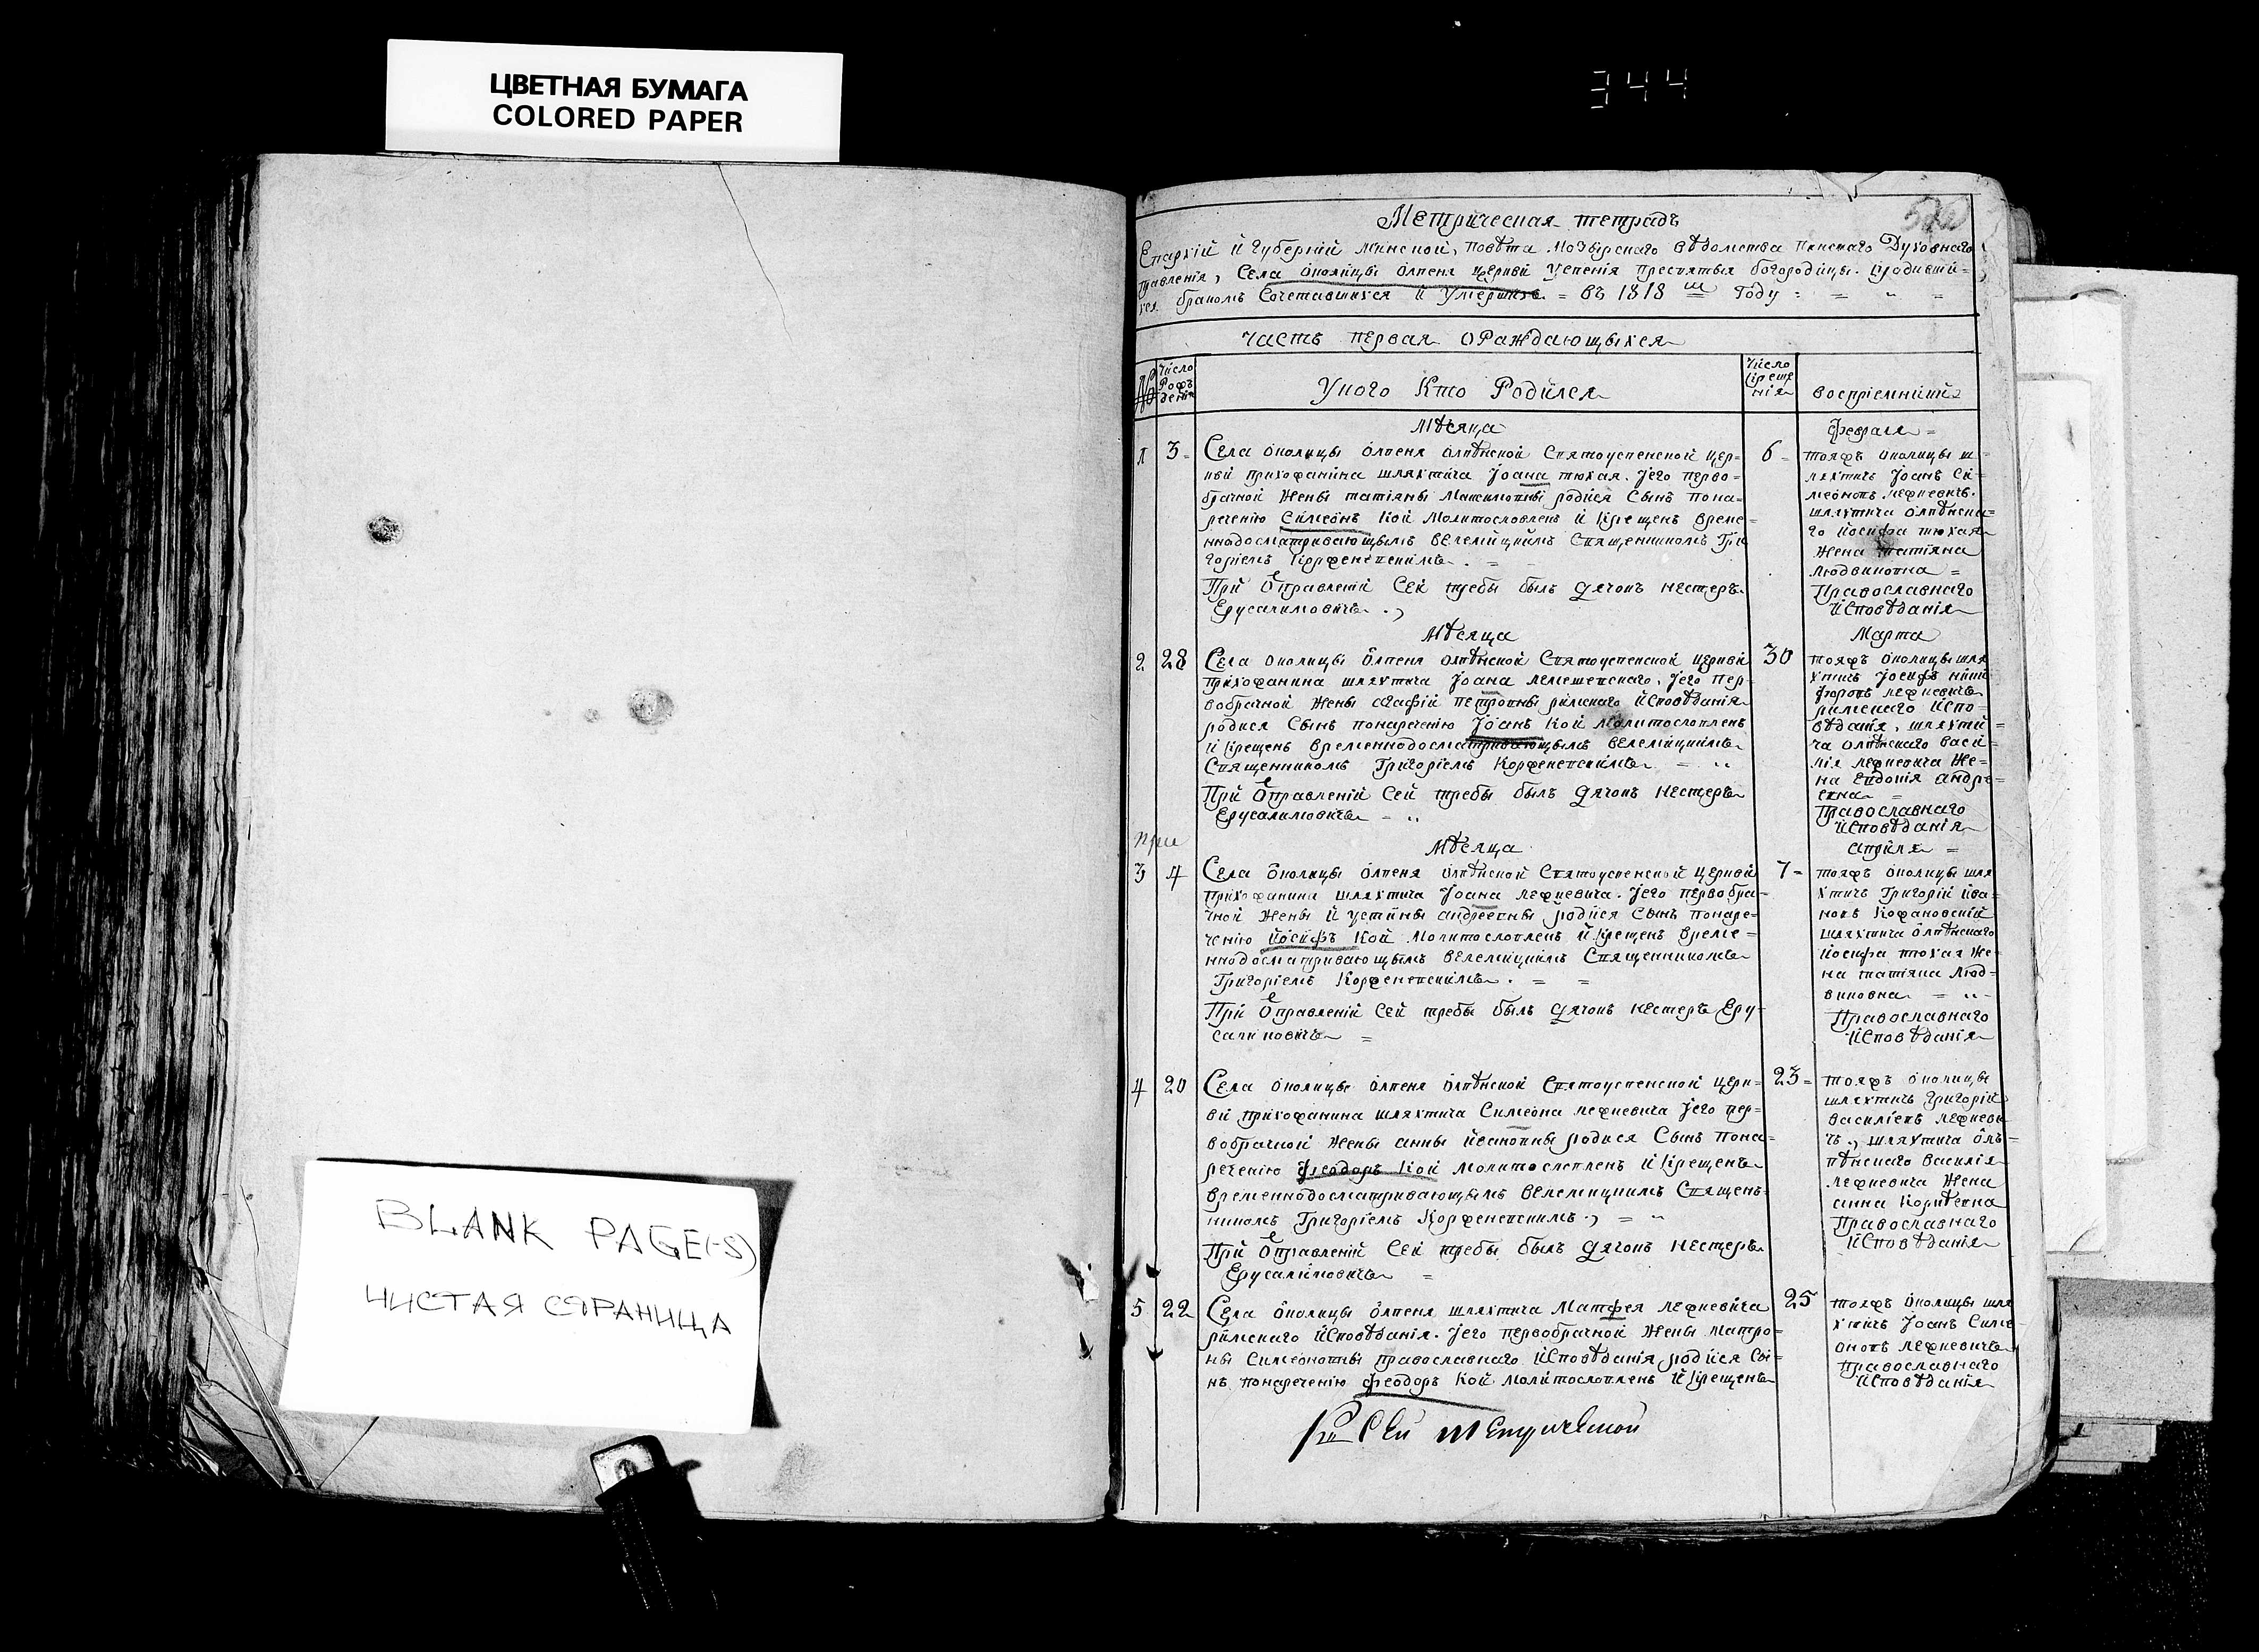 ЦВЕТНАЯ БУМАГА
COLORED PAPER
344
BLANK PAGE(-S)
ЧИСТАЯ СТРАНИЦА
Метрическая тетрадь
Епархій й Губерній минской, повѣта Мозырского вѣдомства пинскаго Духовнаго
правленія, Села Околицы Олпеня церкви Успенія пресвятыя богородицы. Кродивший=
хся бракомъ Сочетавшихся й Умершихъ = въ 1818 м Году
часть первая ораждающыхся
№
Число Рождения
Уного Кто Родился
Число Крещенія
воспріемники
Мѣсяца
февраля =
1
3
Села Околицы Олпеня Олпѣнской Святоуспенской цер=
кви прихожанина шляхтича Іоана тюхая. Јего перво=
брачной Жены татіяны Максимовны родися Сынъ пона=
речению Симеонъ кой Молитвословленъ й Крещенъ време=
ннадосматривающымъ велемицкимъ Священникомъ Гри
горіемъ
При Отправленій Сей требы былъ дячокъ нестеръ
Ерусалимовичъ
6
тояжъ околицы ш=
ляхтичъ Јоанъ Си=
меоновъ леошевичъ.
шляхтича Олпѣнска=
го Йосифа тюхая
Жена татіяна
людвиковна =
Православнаго
йСповѣданія
Мѣсяца
Марта
2
28
Села Околицы Олпеня Олпѣнской Святоуспенской церкви
прихожанина шляхтича Јоана лемешевскаго. Јего пер=
вобрачной Жены агафій петровны римскаго йСповѣданія
родися Сынъ понаречению Јоанъ кой молитвословленъ
й Крещенъ временнодосматривающымъ велемицкимъ
Священникомъ Григоріемъ
При Отправленій Сей требы былъ дячокъ нестеръ
Ерусалимовичъ
30
тояжъ околицы шля
хтичъ Јосифъ
римскаго йспо-
вѣданія, шляхти=
ча олпѣнскаго васи=
лія Же=
на Евдокія андре=
евна
Православнаго
йсповѣданія
Мѣсяца
апрѣля =
3
4
Села Околицы Олпеня Олпѣнской Святоуспенской церкви
Прихожанина шляхтича Јоана Јего первобра=
чной Жены йустины андреевны родйся Сынъ понаре=
чению Йосифъ Кой Молитвословленъ й Крещенъ време=
ннодосматривающымъ велемицкимъ Священникомъ
Григоріемъ
При Отправленій Сей требы былъ дячокъ нестеръ Еру=
салимовичъ =
7
тояжъ околицы шля
хтичъ Григорій йва
новъ
шляхтича Олпѣнскаго
Йосифа тюхая Же
на татіяна люд=
виковна
Православнаго
йСповѣданія
4
20
Села Околицы Олпеня Олпѣнской Святоуспенской церк=
вй прихожанина шляхтича Симеона Јего пер=
вобрачной Жены анны йвановны родися Сынъ пона=
речению феодоръ Кой Молитвословленъ й Крещенъ
временнодосматривающымъ велемицкимъ Священъ=
никомъ Григоріемъ
При Отправленій Сей требы былъ дячокъ нестеръ
Ерусалимовичъ =
23
тояжъ околицы
шляхтичъ Григорій
василіевъ
шляхтича Ол=
пѣнскаго василія
Жена
анна
Православнаго
йСповѣданія
5
22
Села Околицы Олпеня шляхтича Матфея
римскаго йСповѣданія. Јего первобрачной Жены матро=
ны Симеоновны православнаго йСповѣданія родйся Сы=
нъ понаречению феодоръ Кой Молитвословленъ й Крещенъ
25
тояжъ околицы шля
хтичъ Јоанъ Симе
оновъ
Православнаго
йСповѣданія
Къ Сей метрической